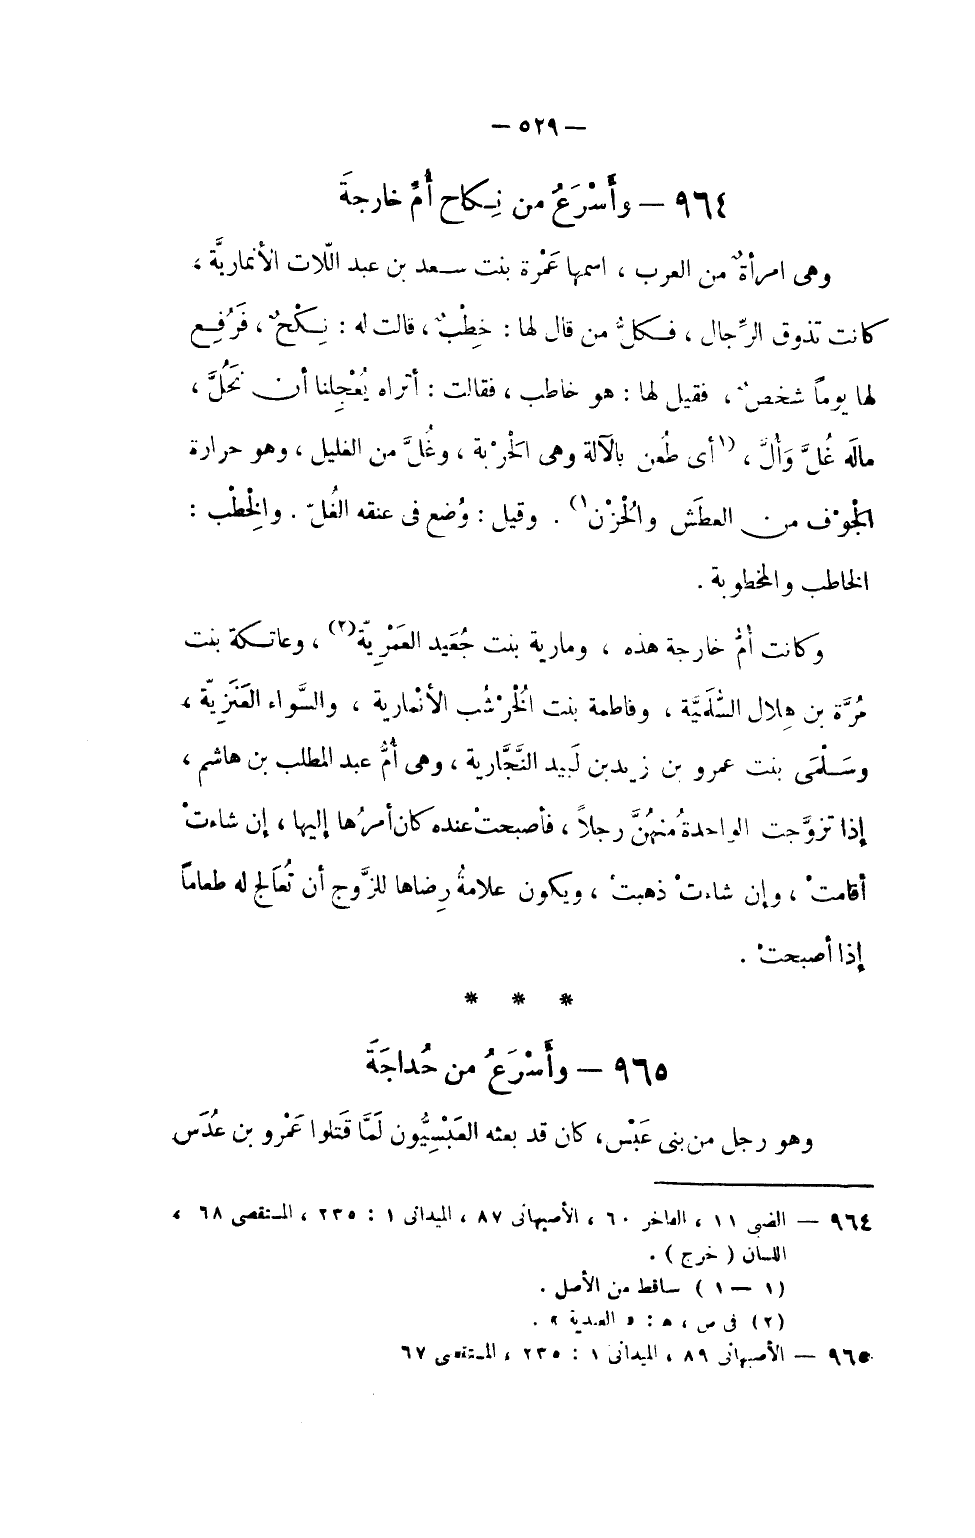 — ٥٢٩ —
٩٦٤ — وأَسْرَعُ من نِكاح أُمِّ خارجةَ
وهى امرأةٌ من العرب ، اسمها عَمْرة بنت سعد بن عبد اللّات الأنماريَّة ،
كانت تذوق الرِّجال ، فكلُّ من قال لها : خِطْبٌ ، قالت له : نِكْحٌ ، فَرُفِع
لها يوماً شخصٌ ، فقيل لها : هو خاطب ، فقالت : أتراه يُعْجِلنا أن نَحُلَّ ،
مالَه غُلَّ وَأُلَّ ، (١أى طُعن بالآلة وهى الحَرْبة ، وغُلَّ من الغليل ، وهو حرارة
الجَوْف من العطَش والحُزْن١) . وقيل : وُضع فى عنقه الغُلّ . والخِطْب :
الخاطب والمخطوبة .
وكانت أمُّ خارجة هذه ، ومارية بنت جُعَيد العَمْريّة(٢) ، وعاتكة بنت
مُرَّة بن هِلال السُّلَميَّة ، وفاطمة بنت الخُرْشُب الأنْمارية ، والسَّواء العَنَزِيّة ،
وسَلْمَى بنت عمرو بن زيدبن لَبيد النَّجَّارية ، وهى أمُّ عبد المطلب بن هاشم ،
إذا تزوَّجت الواحدةُ منهُنَّ رجلاً ، فأصبحتْ عنده كان أمرُها إليها ، إن شاءتْ
أقامتْ ، وإن شاءتْ ذهبتْ ، ويكون علامةُ رِضاها للزَّوج أن تُعَالج له طعاماً
إذا أصبحتْ .
* * *
٩٦٥ — وأَسْرَعُ من حُداجَةَ
وهو رجل من بنى عَبْس، كان قد بعثه العَبْسِيُّون لَمَّا قَتَلوا عَمْرو بن عُدَس
٩٦٤ — الضبى ١١ ، الفاخر ٦٠ ، الأصبهانى ٨٧ ، الميدانى ١ : ٢٣٥ ، المستقصى ٦٨ ،
اللسان ( خرج ) .
(١ — ١ ) ساقط من الأصل .
(٢) فى ص ، ه : « العبدية » .
٩٦٥ — الأصبهانى ٨٩ ، الميدانى ١ : ٢٣٥ ، المستقصى ٦٧